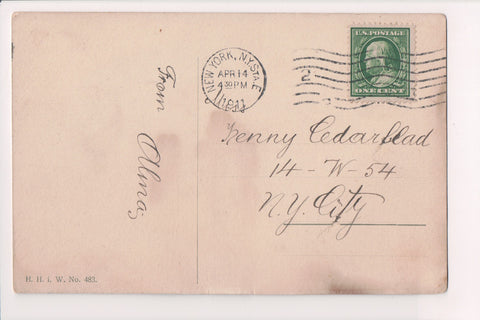 U.S. POSTAGE
ONE CENT
NEW YORK, N.Y. STA. E
APR 14
4 30 PM
1911
2
From
Alma
Jenny Cedarblad
14 - W - 54
N.Y. City
H. H. i. W. No. 483.